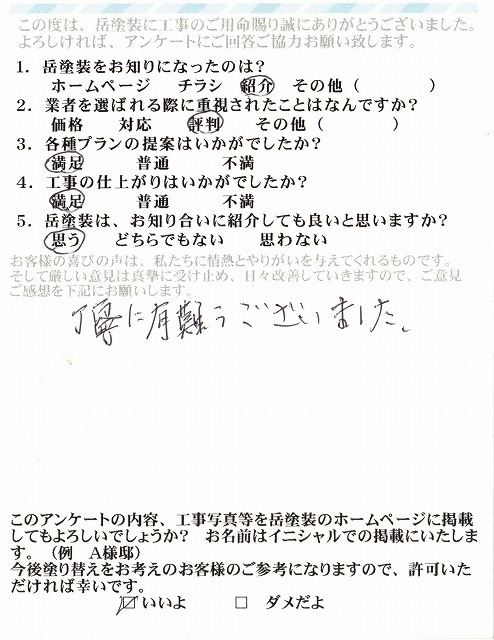 この度は、岳塗装に工事のご用命賜り誠にありがとうございました。
よろしければ、アンケートにご回答ご協力お願い致します。
1．岳塗装をお知りになったのは？
ホームページ　チラシ　紹介　その他（　　　　）
2．業者を選ばれる際に重視されたことはなんですか？
価格　対応　評判　その他（　　　　）
3．各種プランの提案はいかがでしたか？
満足　普通　不満
4．工事の仕上がりはいかがでしたか？
満足　普通　不満
5．岳塗装は、お知り合いに紹介しても良いと思いますか？
思う　どちらでもない　思わない
お客様の喜びの声は、私たちに情熱とやりがいを与えてくれるものです。
そして厳しい意見は真摯に受け止め、日々改善していきますので、ご意見
ご感想を下記にお願いします。
丁寧に有難うございました。
このアンケートの内容、工事写真等を岳塗装のホームページに掲載
してもよろしいでしょうか？　お名前はイニシャルでの掲載にいたしま
す。（例　A様邸）
今後塗り替えをお考えのお客様のご参考になりますので、許可いた
だければ幸いです。
☑いいよ　□　ダメだよ